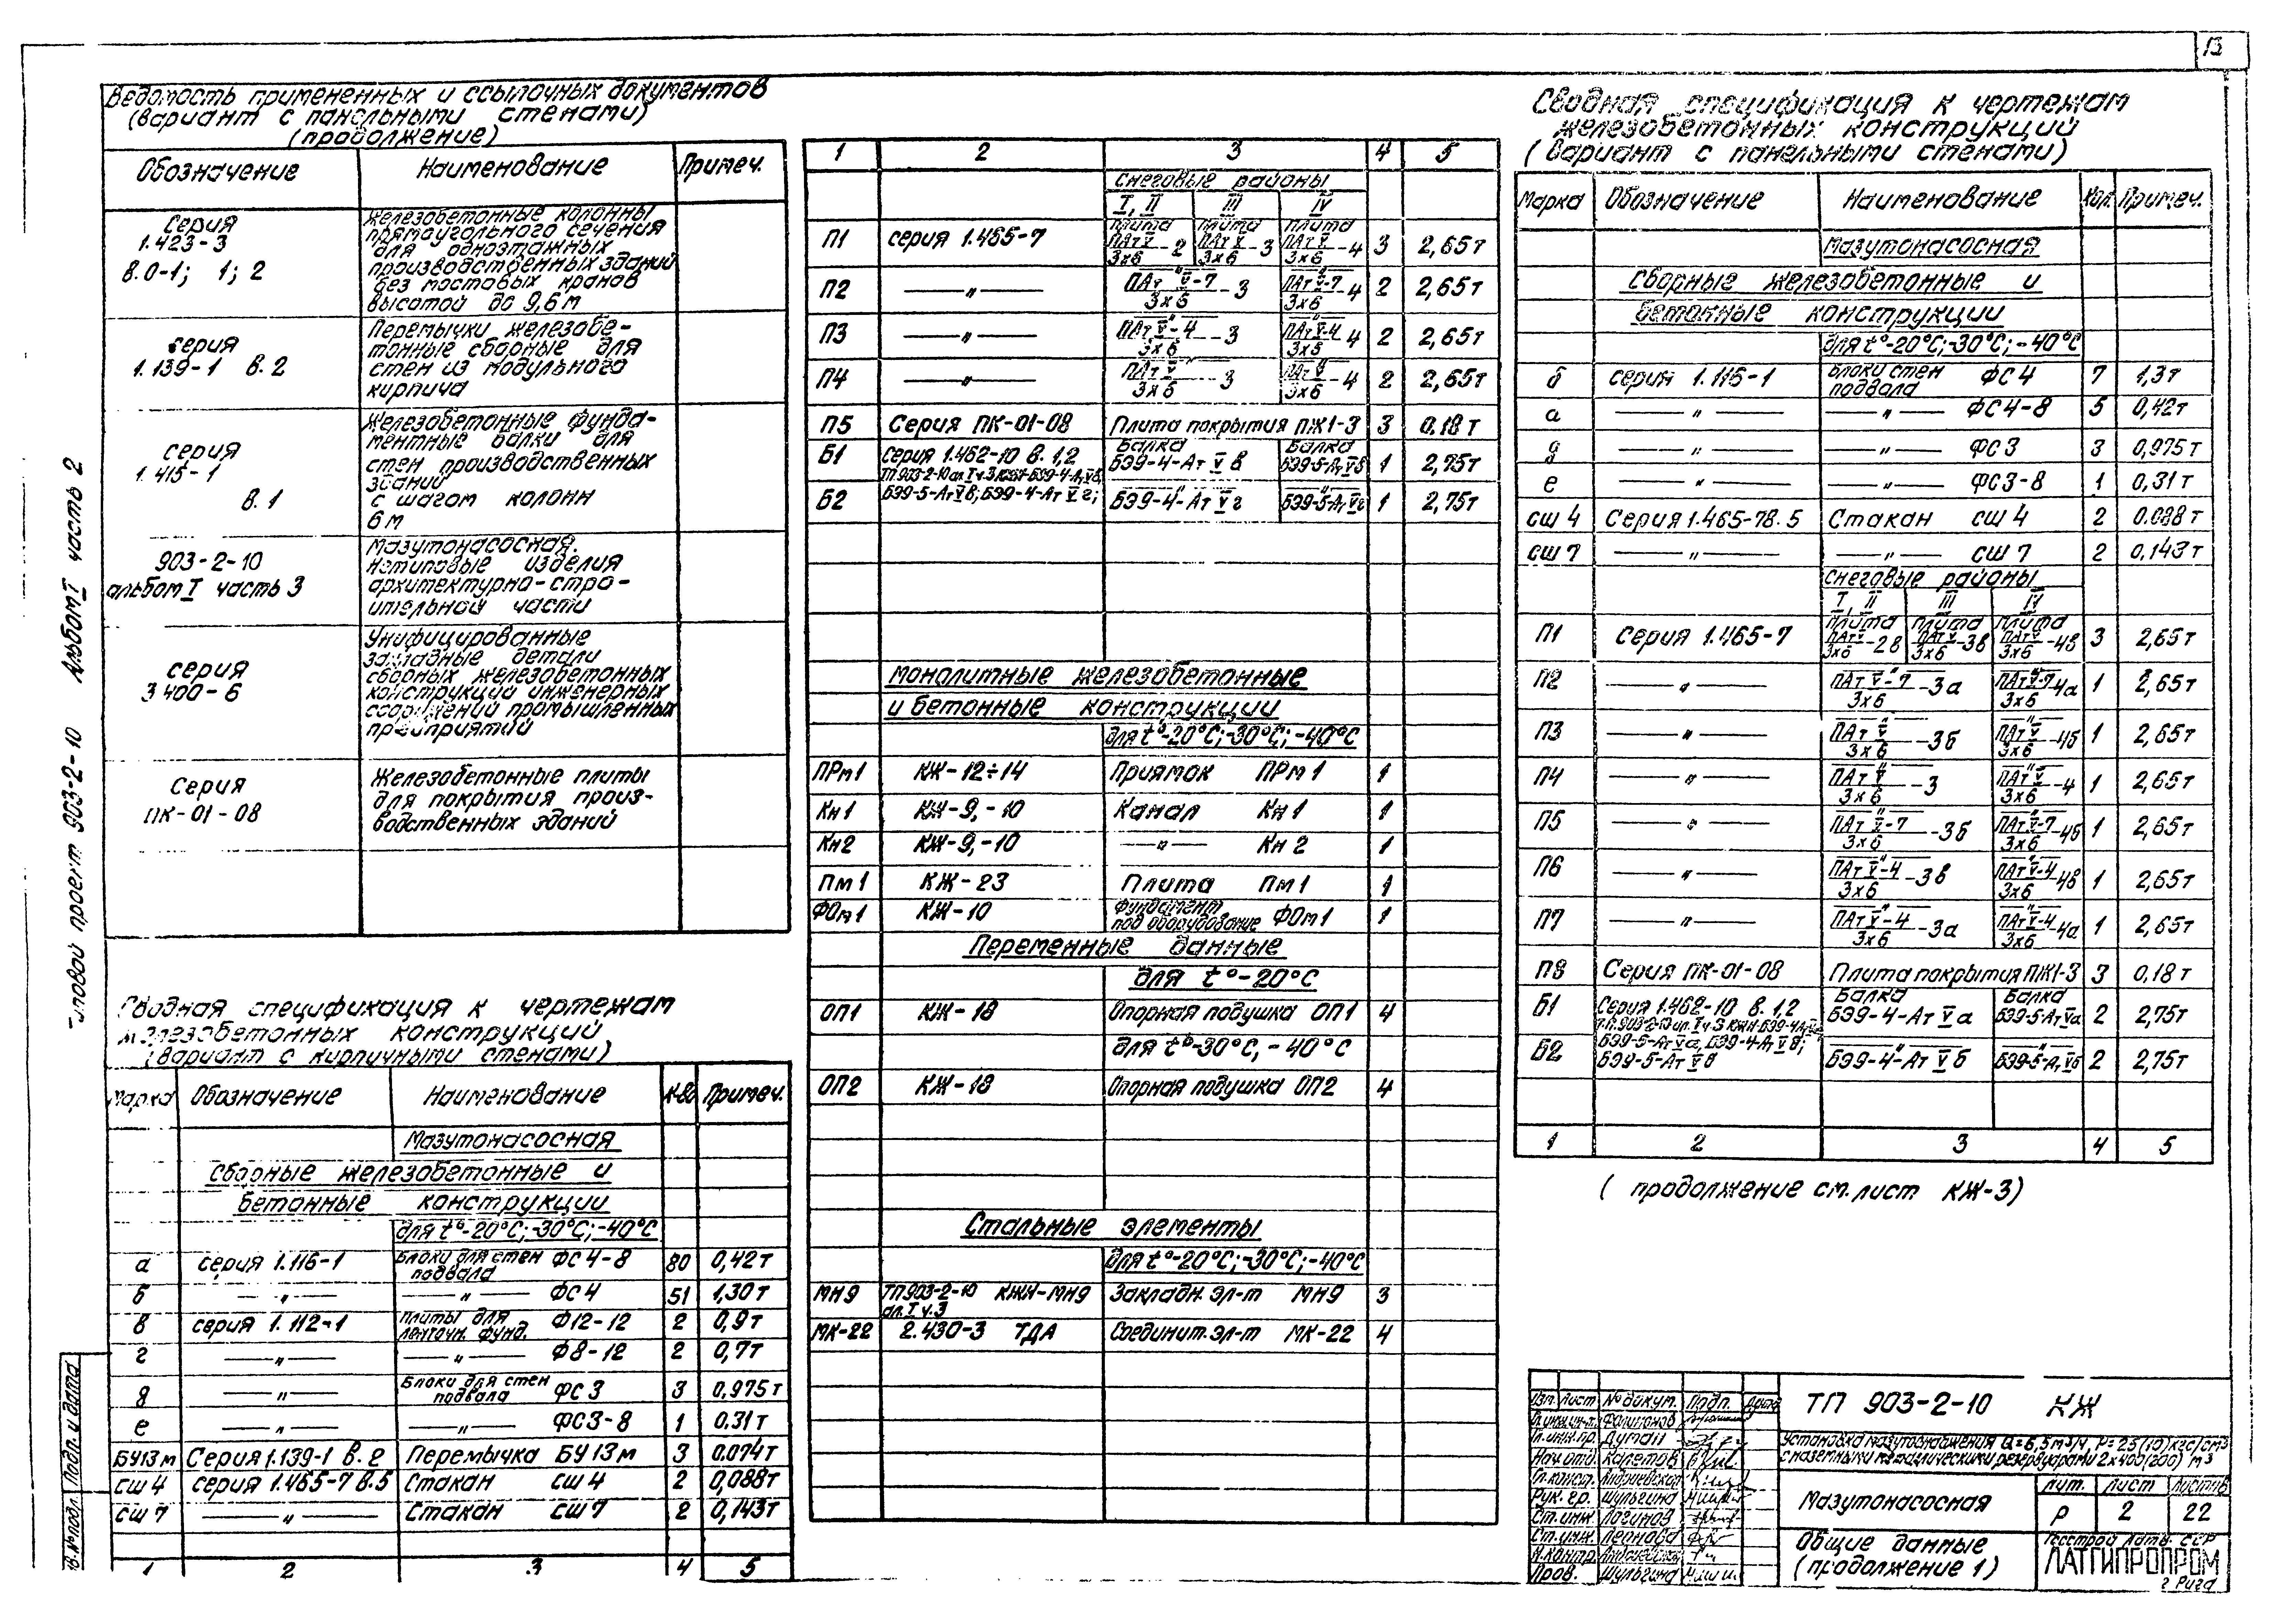 13
Ведомость примененных и ссылочных документов
(вариант с панельными стенами)
(продолжение)
Обозначение Наименование Примеч.
Серия 1.423-3 в.0-1; 1; 2
Железобетонные колонны
прямоугольного сечения
для одноэтажных
производственных зданий
без мостовых кранов
высотой до 9,6м
серия 1.139-1 в.2
Перемычки железобе-
тонные сборные для
стен из модульного
кирпича
серия 1.415-1 в.1
Железобетонные фунда-
ментные балки для
стен производственных
зданий
с шагом колонн
6м
903-2-10
альбом I часть 3
Мазутонасосная.
Нетиповые изделия
архитектурно-стро-
ительной части
серия 3.400-6
Унифицированные
закладные детали
сборных железобетонных
конструкций инженерных
сооружений промышленных
предприятий
Серия ПК-01-08
Железобетонные плиты
для покрытия произ-
водственных зданий
Сводная спецификация к чертежам
железобетонных конструкций
(вариант с кирпичными стенами)
Марка Обозначение Наименование К-во Примеч.
Мазутонасосная
Сборные железобетонные и
бетонные конструкции
для t°-20°С;-30°С;-40°С
а серия 1.116-1 Блоки для стен подвала ФС4-8 80 0,42т
б —„— —„— ФС4 51 1,30т
в серия 1.112-1 Плиты для ленточн. фунд. Ф12-12 2 0,9т
г —„— —„— Ф8-12 2 0,7т
д —„— Блоки для стен подвала ФС3 3 0,975т
е —„— —„— ФС3-8 1 0.31т
БУ13м Серия 1.139-1 в.2 Перемычка БУ13м 3 0.074т
сш 4 серия 1.465-7 в.5 Стакан сш 4 2 0,088т
сш 7 —„— Стакан сш 7 2 0,143т
1 2 3 4 5
1 2 3 4 5
Снеговые районы
I, II III IV
П1 серия 1.465-7 плита ПАтV/3х6-2 плита ПАтV/3х6-3 плита ПАтV/3х6-4 3 2,65т
П2 —„— ПАтV-7/3х6-3 ПАтV-7/3х6-4 2 2,65т
П3 —„— ПАтV-4/3х6-3 ПАтV-4/3х6-4 2 2,65т
П4 —„— ПАтV/3х6-3 ПАтV/3х6-4 2 2,65т
П5 Серия ПК-01-08 Плита покрытия ПЖ1-3 3 0.18т
Б1 серия 1.462-10 в.1,2 Балка БЭ9-4-АтVв Балка БЭ9-5-АтVв 1 2,75т
ТП 903-2-10 ал.I ч.3 КЖИ-БЭ9-4-АтVв,
Б2 БЭ9-5-АтVв; БЭ9-4-АтVг; БЭ9-4-АтVг БЭ9-5-АтVг 1 2,75т
монолитные железобетонные
и бетонные конструкции
для t°-20°С;-30°С;-40°С
ПРм1 КЖ-12÷14 Приямок ПРм1 1
Кн1 КЖ-9,-10 Канал Кн1 1
Кн2 КЖ-9,-10 —„— Кн2 1
Пм1 КЖ-23 Плита Пм1 1
ФОм1 КЖ-10 Фундамент под оборудование ФОм1 1
Переменные данные
для t°-20°С
ОП1 КЖ-18 Опорная подушка ОП1 4
для t°-30°С,-40°С
ОП2 КЖ-18 Опорная подушка ОП2 4
Стальные элементы
для t°-20°С;-30°С;-40°С
МН9 ТП903-2-10 КЖИ-МН9 ал.I ч.3 Закладн. эл-т МН9 3
МК-22 2.430-3 ТДА Соединит. эл-т МК-22 4
Сводная спецификация к чертежам
железобетонных конструкций
(вариант с панельными стенами)
Марка Обозначение Наименование Кол. Примеч.
Мазутонасосная
Сборные железобетонные и
бетонные конструкции
для t°-20°С;-30°С;-40°С
б серия 1.116-1 Блоки стен подвала ФС4 7 1,3т
а —„— —„— ФС4-8 5 0,42т
д —„— —„— ФС3 3 0,975т
е —„— —„— ФС3-8 1 0,31т
сш 4 Серия 1.465-7 в.5 Стакан сш 4 2 0.088т
сш 7 —„— —„— сш 7 2 0,143т
Снеговые районы
I, II III IV
П1 Серия 1.465-7 плита ПАтV/3х6-2в плита ПАтV/3х6-3в плита ПАтV/3х6-4в 3 2,65т
П2 —„— ПАтV-7/3х6-3а ПАтV-7/3х6-4а 1 2,65т
П3 —„— ПАтV/3х6-3б ПАтV/3х6-4б 1 2,65т
П4 —„— ПАтV/3х6-3 ПАтV/3х6-4 1 2,65т
П5 —„— ПАтV-7/3х6-3б ПАтV-7/3х6-4б 1 2,65т
П6 —„— ПАтV-4/3х6-3в ПАтV-4/3х6-4в 1 2,65т
П7 —„— ПАтV-4/3х6-3а ПАтV-4/3х6-4а 1 2,65т
П8 Серия ПК-01-08 Плита покрытия ПЖ1-3 3 0,18т
Б1 Серия 1.462-10 в.1,2 Балка БЭ9-4-АтVа Балка БЭ9-5-АтVа 2 2,75т
Т.П. 903-2-10 ал.I ч.3 КЖИ-БЭ9-4-АтVа
Б2 БЭ9-5-АтVа, БЭ9-4-АтVв; БЭ9-5-АтVв БЭ9-4-АтVб БЭ9-5-АтVб 2 2,75т
1 2 3 4 5
(продолжение см. лист КЖ-3)
Изм. Лист №докум. Подп. Дата
Гл.инж.пр. Думан
Нач.отд. Каретов
Гл.конст.
Рук.гр. Шульгина
Ст.инж. Логинов
Ст.инж.
Н.контр.
Пров. Шульгина
ТП 903-2-10 КЖ
Установка мазутоснабжения Q=6,5м³/ч, P=25(10)кгс/см²
с наземными металлическими резервуарами 2х400(200) м³
Мазутонасосная
Лит. Лист Листов
Р 2 22
Общие данные
(продолжение 1)
Госстрой Латв. ССР
ЛАТГИПРОПРОМ
г. Рига
Типовой проект 903-2-10 Альбом I часть 2
Подп. и дата